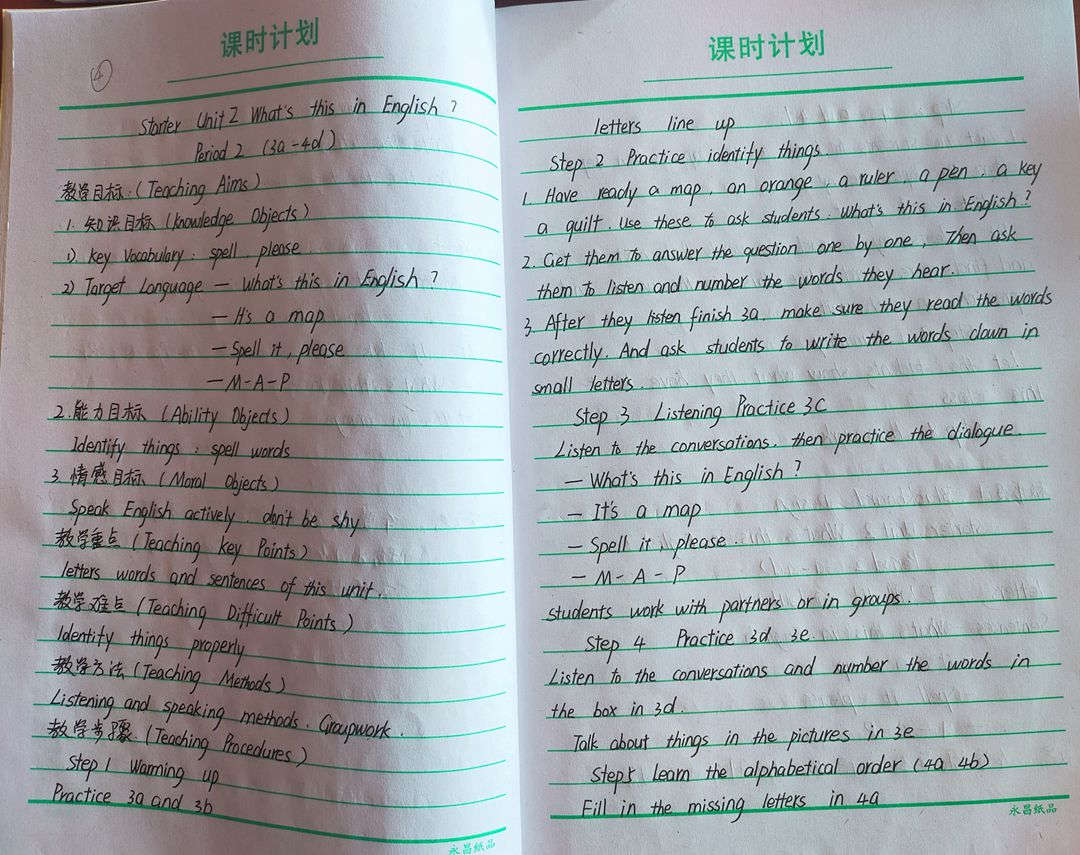 课时计划
④
Starter Unit 2 What's this in English?
Period 2 (3a-4d)
教学目标:(Teaching Aims)
1. 知识目标 (Knowledge Objects)
1) Key Vocabulary: spell, please
2) Target Language — What's this in English?
— It's a map
— Spell it, please
— M-A-P
2. 能力目标 (Ability Objects)
Identify things; spell words
3. 情感目标 (Moral Objects)
Speak English actively. don't be shy
教学重点 (Teaching Key Points)
letters words and sentences of this unit.
教学难点 (Teaching Difficult Points)
Identify things properly
教学方法 (Teaching Methods)
Listening and speaking methods. Groupwork.
教学步骤 (Teaching Procedures)
Step 1 Warming up
Practice 3a and 3b
永昌纸品
课时计划
letters line up
Step 2 Practice identify things
1. Have ready a map, an orange, a ruler, a pen, a key
a quilt. Use these to ask students. What's this in English?
2. Get them to answer the question one by one, Then ask
them to listen and number the words they hear.
3. After they listen finish 3a, make sure they read the words
correctly. And ask students to write the words down in
small letters.
Step 3 Listening Practice 3c
Listen to the conversations. then practice the dialogue.
— What's this in English?
— It's a map
— Spell it, please.
— M-A-P
students work with partners or in groups.
Step 4 Practice 3d 3e
Listen to the conversations and number the words in
the box in 3d.
Talk about things in the pictures in 3e
Step5 Learn the alphabetical order (4a 4b)
Fill in the missing letters in 4a
永昌纸品